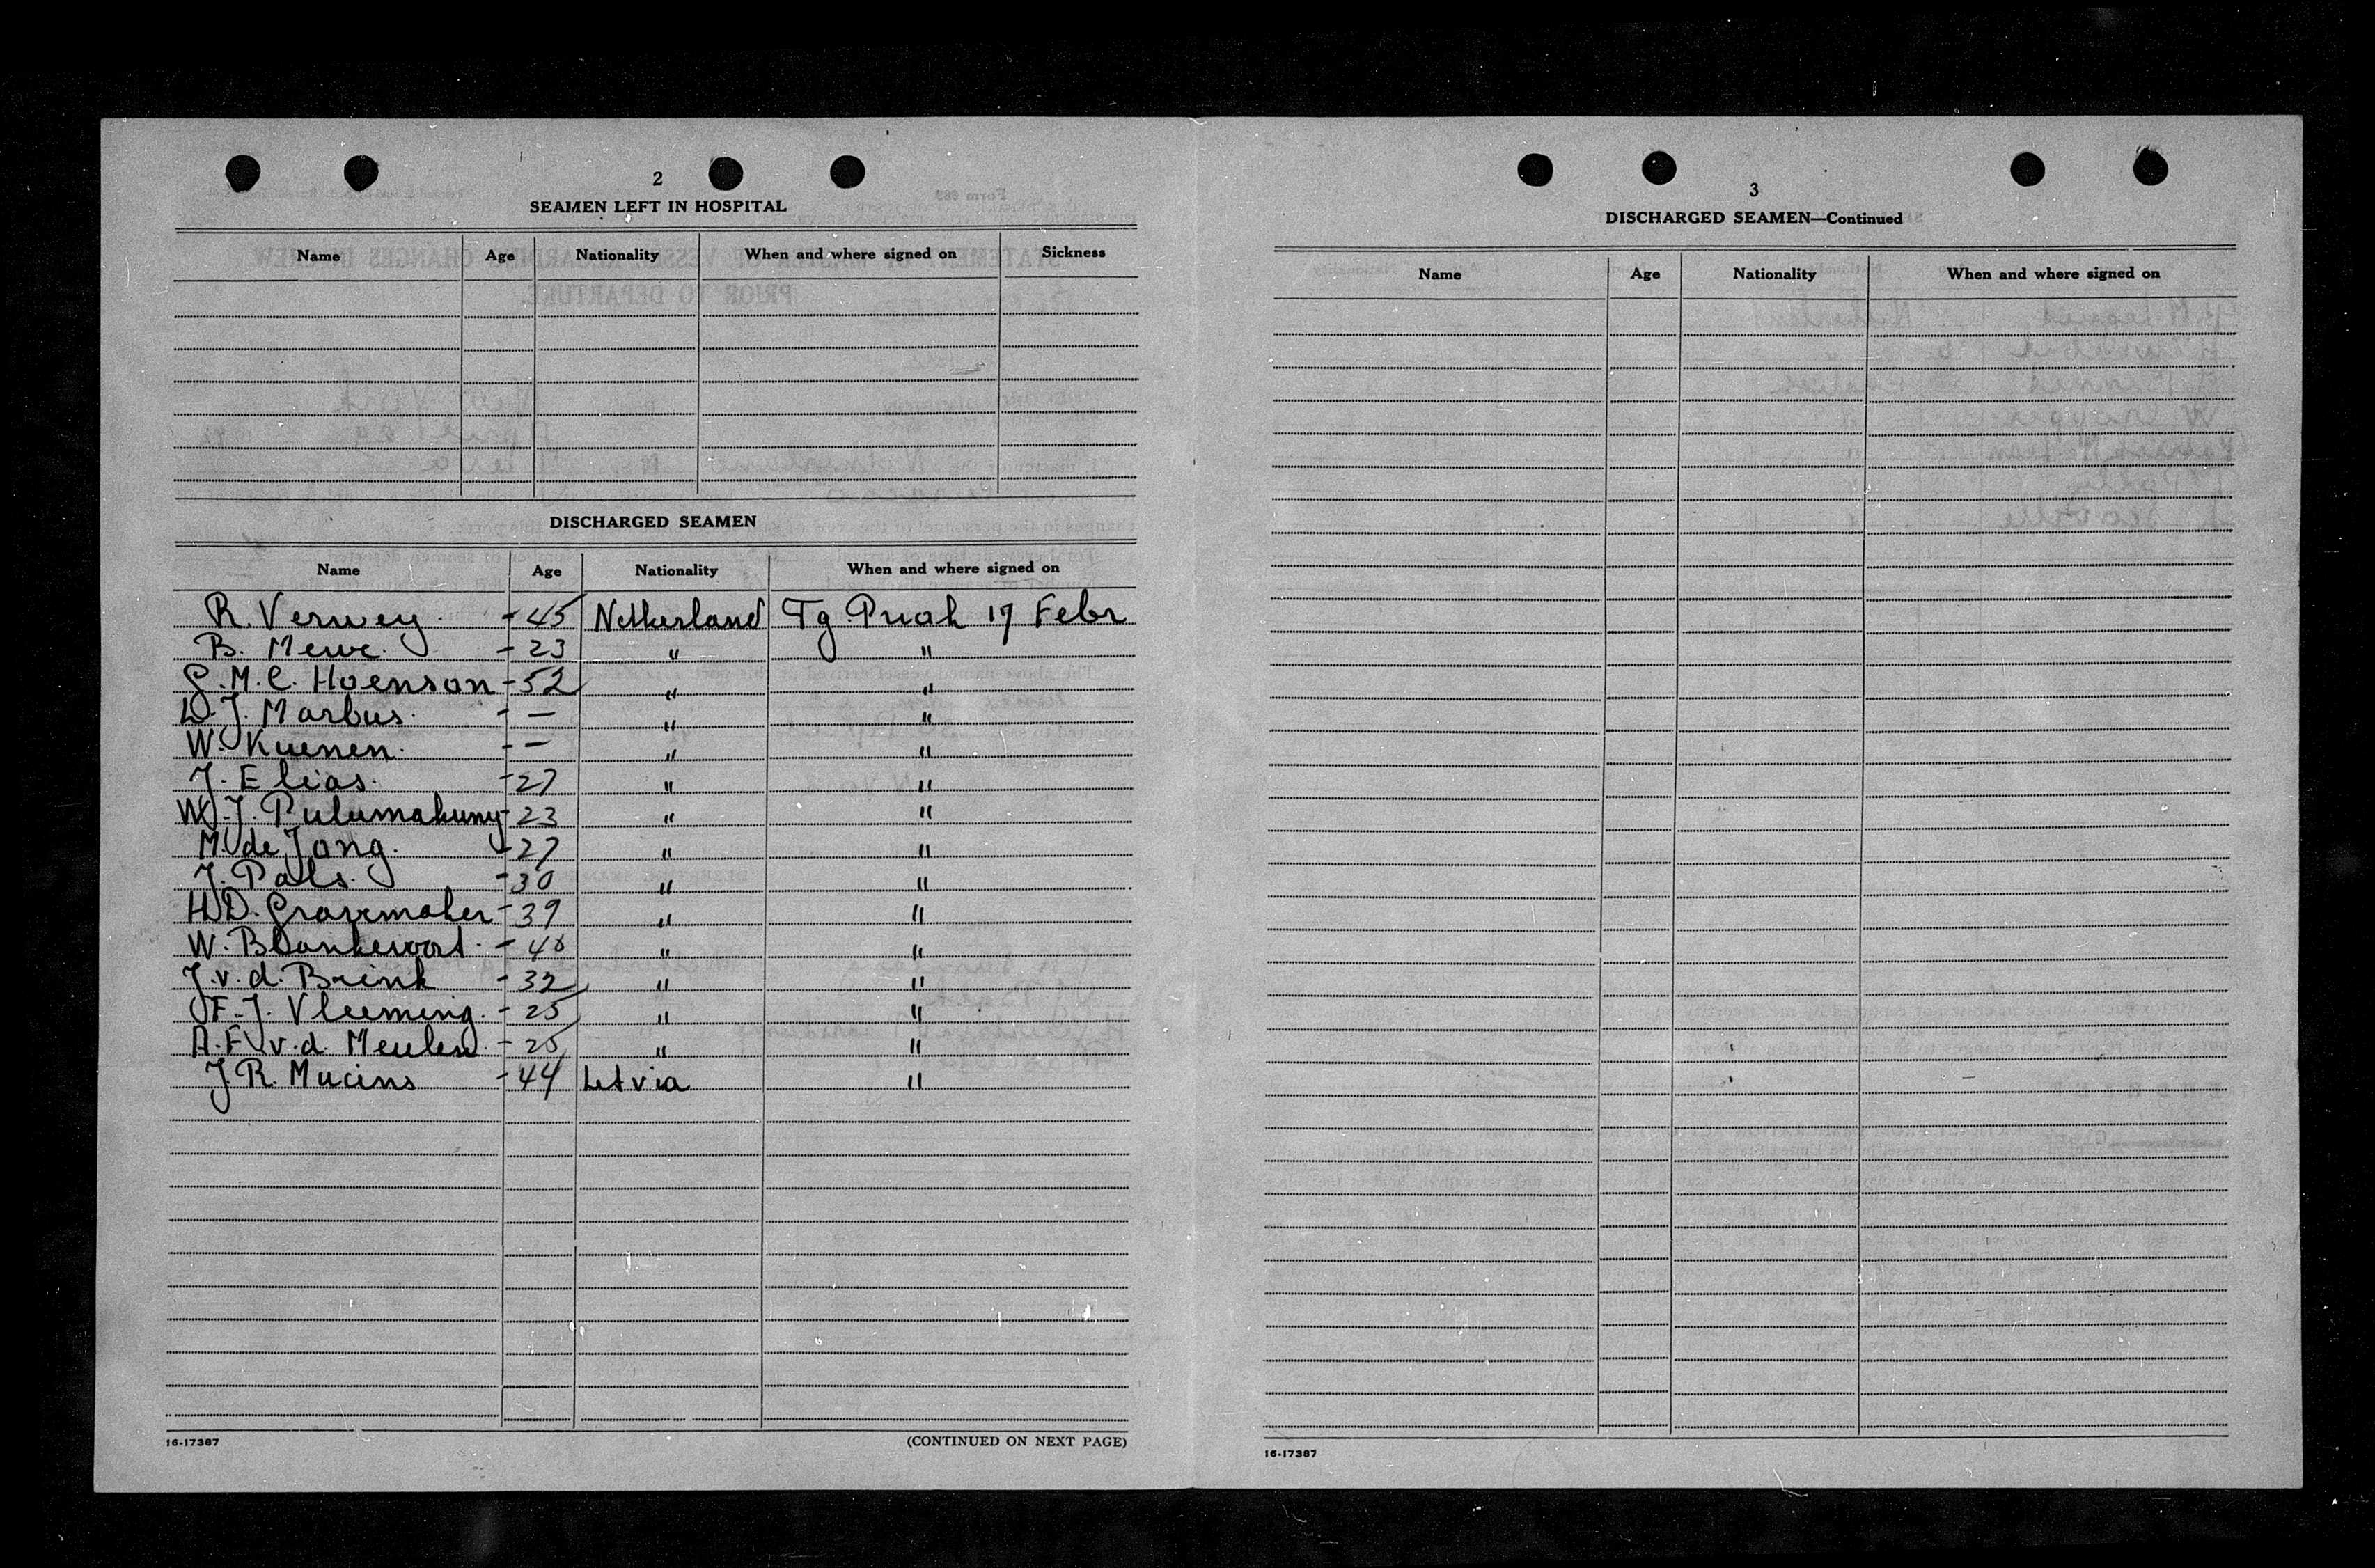 2
SEAMEN LEFT IN HOSPITAL
Name Age Nationality When and where signed on Sickness
DISCHARGED SEAMEN
Name Age Nationality When and where signed on
R. Verwey. - 45 Netherland Tg Priok 17 Febr
B. Merwe. - 23 " "
G.M.C. Hoenson - 52 " "
D.J. Marbus. - — " "
W. Kuenen. - — " "
J. Elias. - 27 " "
W.J. - 23 " "
M. de Jong. - 27 " "
J. Pals. - 30 " "
H.D. Gravemaker - 39 " "
W. Blankevoort. - " "
J. v. d. Brink - 32 " "
F.J. Vleeming. - 25 " "
A.F. v.d. Meulen. - 25 " "
J.R. Mucins - 44 Letvia "
16-17387
(CONTINUED ON NEXT PAGE)
3
DISCHARGED SEAMEN—Continued
Name Age Nationality When and where signed on
16-17387